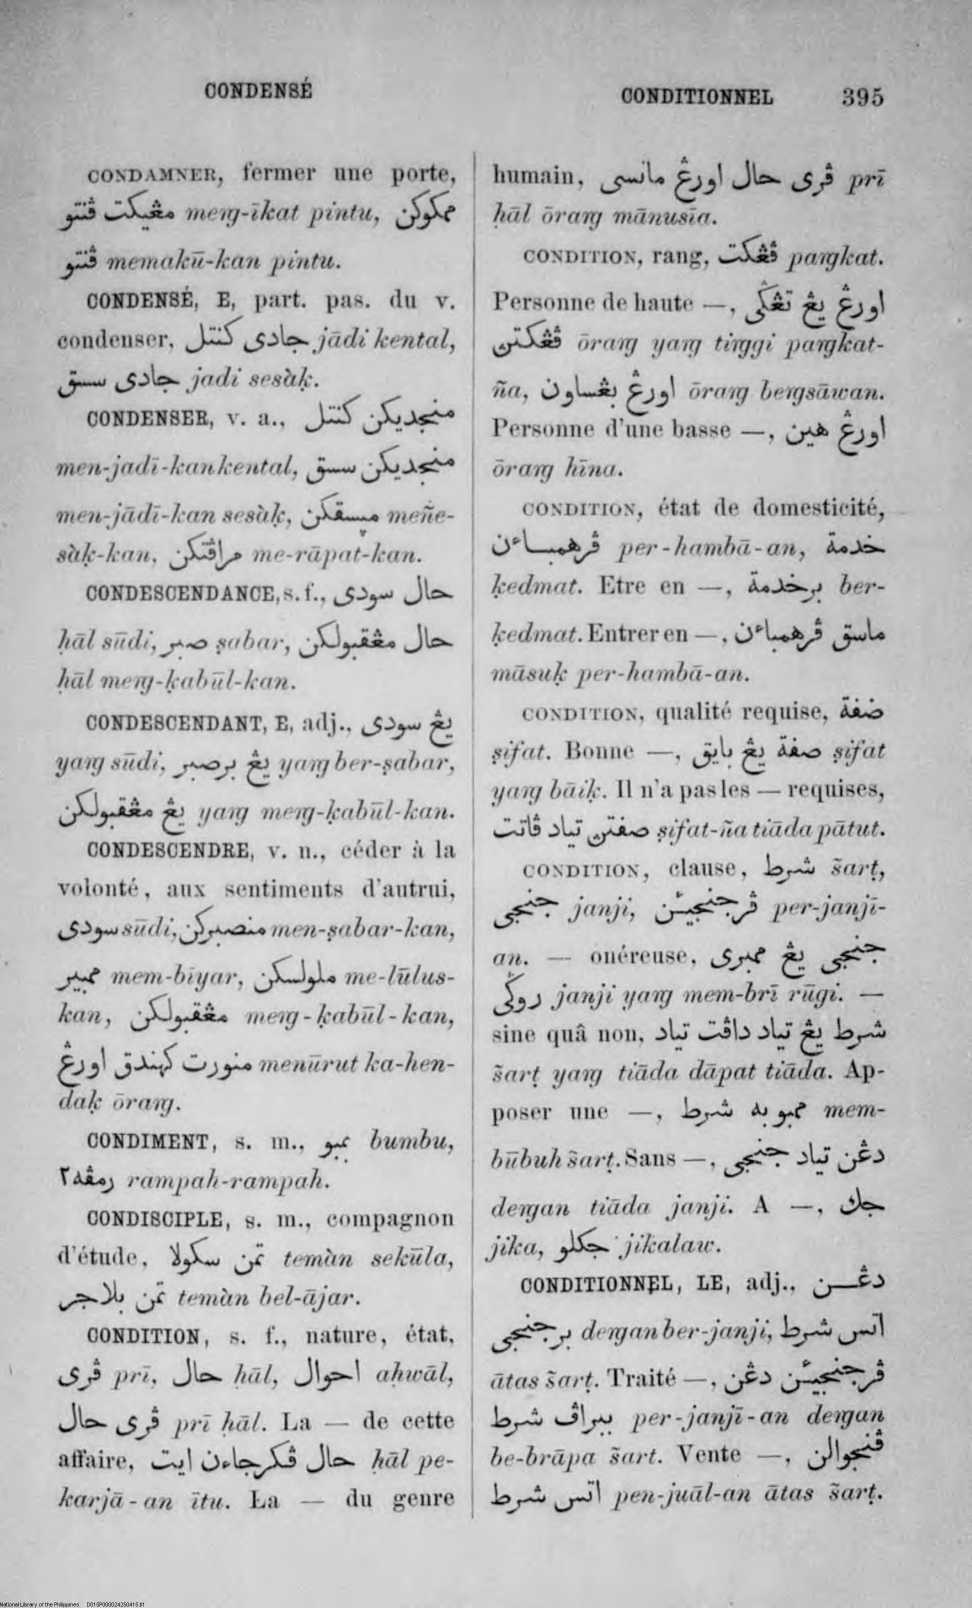 CONDENSÉ
CONDITIONNEL 395
CONDAMNER, fermer une porte,
مڠيکت ڤنتو meṅg-īkat pintu, ممکوکن
ڤنتو memakū-kan pintu.
CONDENSÉ, E, part. pas. du v.
condenser, جادی کنتل jādi kental,
جادی سسق jadi sesàḳ.
CONDENSER, v. a., منجديکن کنتل
men-jadī-kan kental, منجديکن سسق
men-jādī-kan sesàḳ, مڽسقکن meñe-
sàḳ-kan, مراڤتکن me-rāpat-kan.
CONDESCENDANCE, s. f., حال سودی
ḥāl sūdi, صبر ṣabar, حال مڠقبولکن
ḥāl meṅg-ḳabūl-kan.
CONDESCENDANT, E, adj., يڠ سودی
yaṅg sūdi, يڠ برصبر yaṅg ber-ṣabar,
يڠ مڠقبولکن yaṅg meṅg-ḳabūl-kan.
CONDESCENDRE, v. n., céder à la
volonté, aux sentiments d'autrui,
سودی sūdi, منصبرکن men-ṣabar-kan,
ممبير mem-bīyar, ملولسکن me-lūlus-
kan, مڠقبولکن meṅg-ḳabūl-kan,
منورت کهندق اورڠ menūrut ka-hen-
daḳ ōraṅg.
CONDIMENT, s. m., بمبو bumbu,
رمڤه٢ rampah-rampah.
CONDISCIPLE, s. m., compagnon
d'étude, تمن سکولا temàn sekūla,
تمن بلاجر temàn bel-ājar.
CONDITION, s. f., nature, état,
ڤری prī, حال ḥāl, احوال aḥwāl,
ڤری حال prī ḥāl. La — de cette
affaire, حال ڤکرجاءن ايت ḥāl pe-
karjā-an ītu. La — du genre
humain, ڤری حال اورڠ مانسی prī
ḥāl ōraṅg mānusīa.
CONDITION, rang, ڤڠکت paṅgkat.
Personne de haute —, اورڠ يڠ تڠݢی
ڤڠکتن ōraṅg yaṅg tiṅggi paṅgkat-
ña, اورڠ بڠساون ōraṅg beṅgsāwan.
Personne d'une basse —, اورڠ هين
ōraṅg hīna.
CONDITION, état de domesticité,
ڤرهمباءن per-hambā-an, خدمة
ḳedmat. Etre en —, برخدمة ber-
ḳedmat. Entrer en —, ماسق ڤرهمباءن
māsuḳ per-hambā-an.
CONDITION, qualité requise, ضفة
ṣifat. Bonne —, صفة يڠ بايق ṣifat
yaṅg bāiḳ. Il n'a pas les — requises,
صفتن تياد ڤاتت ṣifat-ña tiāda pātut.
CONDITION, clause, شرط s̃arṭ,
جنجی janji, ڤرجنجيئن per-janjī-
an. — onéreuse, جنجی يڠ ممبری
روݢی janji yaṅg mem-brī rūgi. —
sine quâ non, شرط يڠ تياد داڤت تياد
s̃arṭ yaṅg tiāda dāpat tiāda. Ap-
poser une —, ممبوبه شرط mem-
būbuh s̃arṭ. Sans —, دڠن تياد جنجی
deṅgan tiāda janji. A —, جك
jika, جکلو jikalaw.
CONDITIONNEL, LE, adj., دڠـــن
برجنجی deṅgan ber-janji, اتس شرط
ātas s̃arṭ. Traité —, ڤرجنجيئن دڠن
ببراڤ شرط per-janjī-an deṅgan
be-brāpa s̃art. Vente —, ڤنجوالن
اتس شرط pen-juāl-an ātas s̃arṭ.
National Library of the Philippines